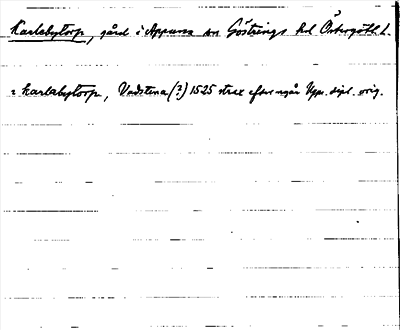 Karlabytorp, gård i Appuna sn Göstrings hd Östergötl. l.
i karlabytorp, Vadstena (?) 1525 strax efter nyår Upps. dipl. orig.